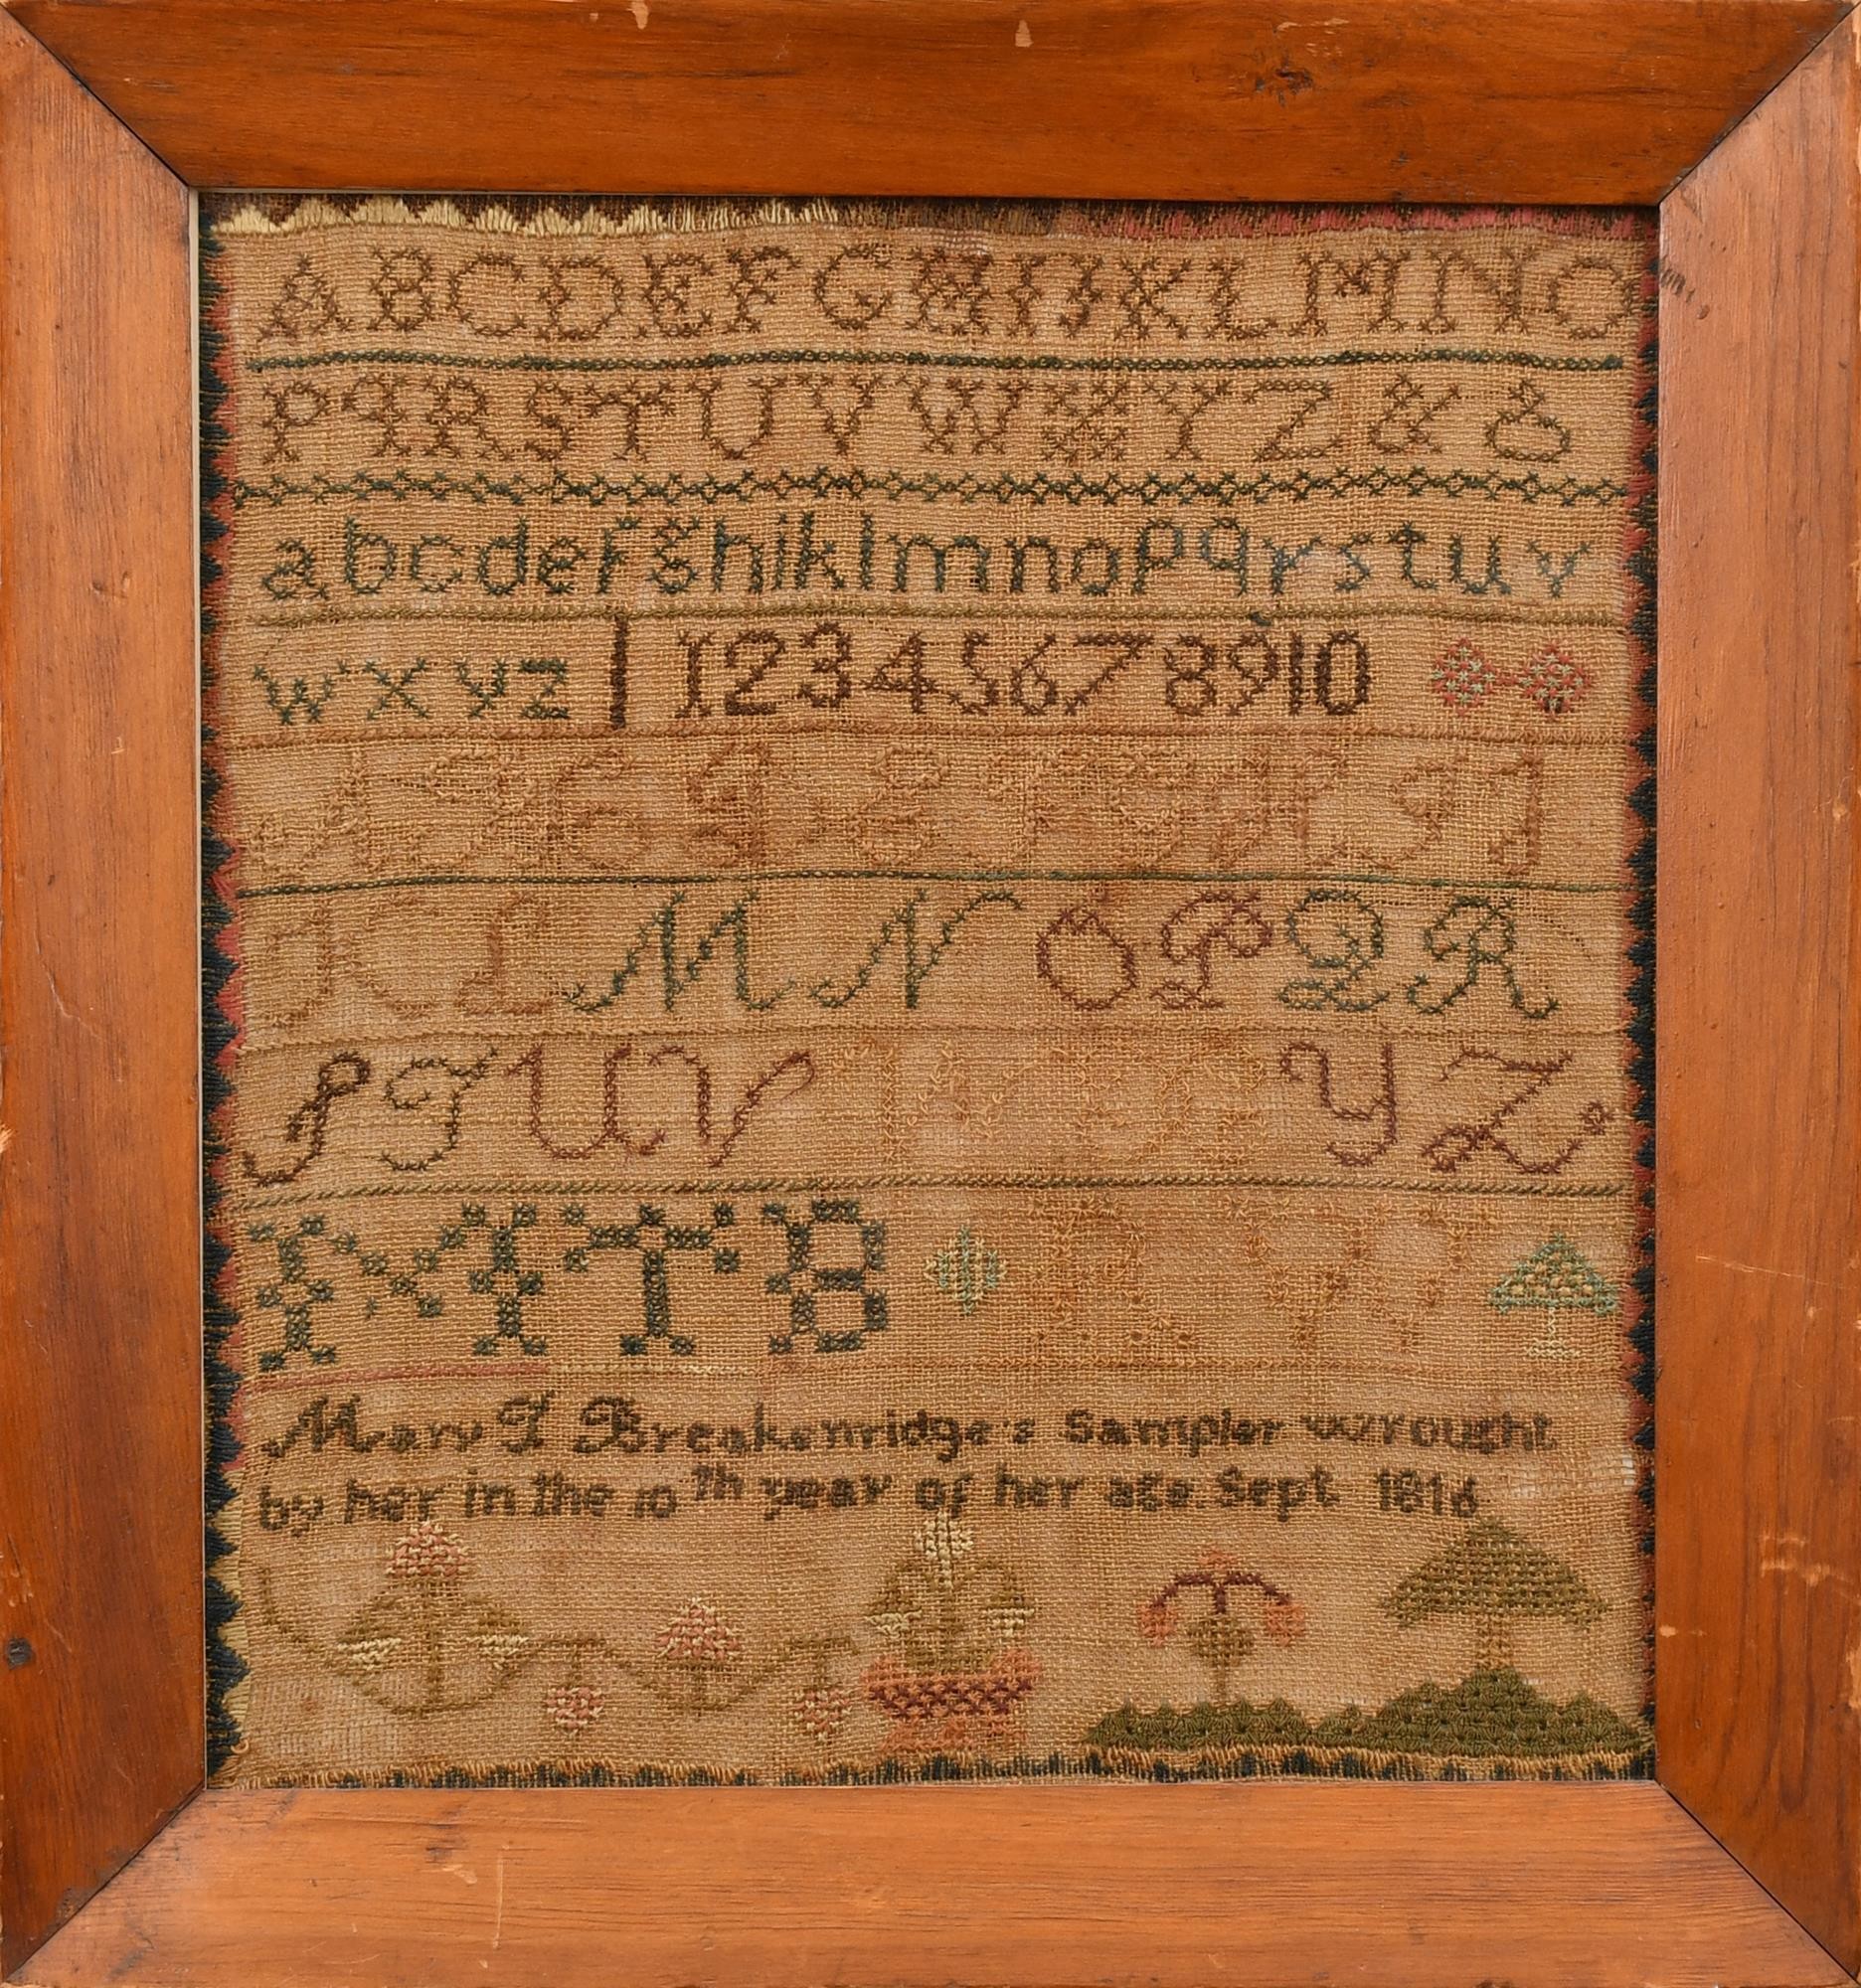 ABCDEFGHIJKLMNO
PQRSTUVWXYZ&
abcdefghiklmnopqrstuv
wxyz 12345678910
KLMNOPQR
STUVWXYZ.
MTB
Mary T Breakenridge's Sampler wrought
by her in the 10th year of her age. Sept 1816